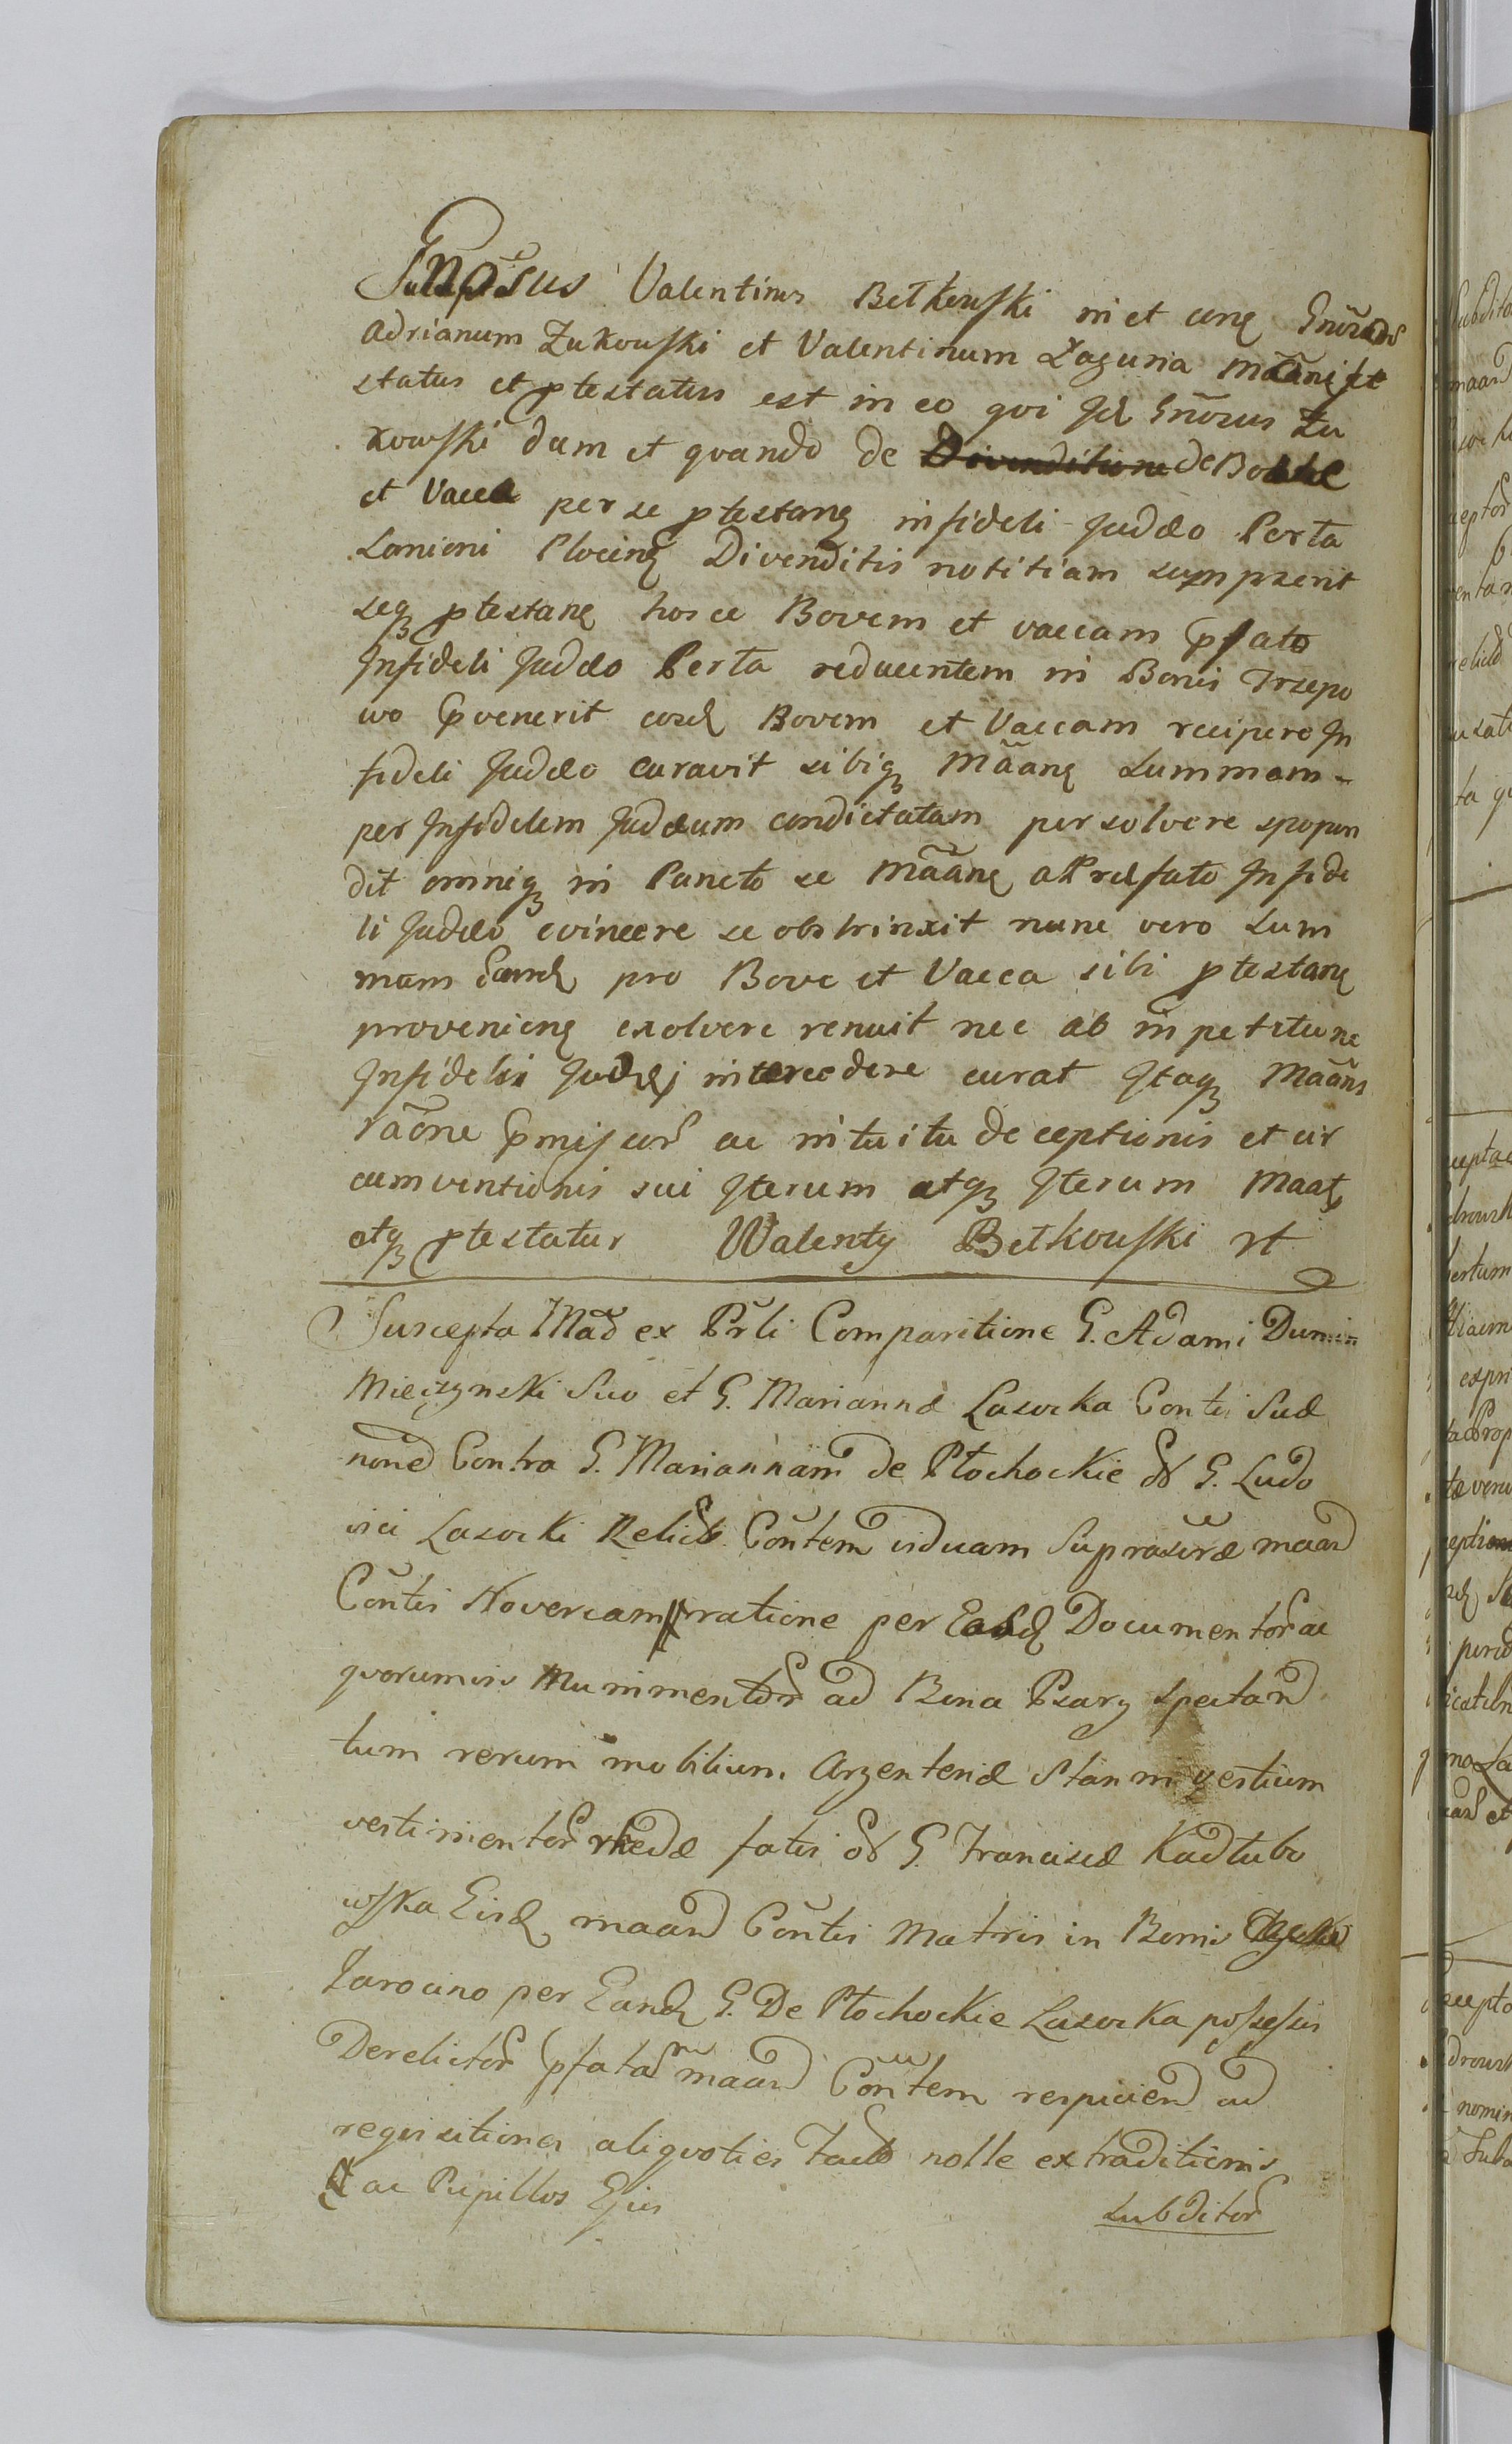 Gnosus Valentinus Betkowski in et conę Gnosos
Adrianum Zukowski et Valentinum Laguna Maanife
status et ptestatus est in eo qvi Jd Gnosus Zu
kowski dum et qvando de Divenditione de Bove
et Vacca per se ptestanę infideli Judæo Perta
Lanioni Plocinę Divenditis notitiam sumpserit
seqꝫ ptestanę hosce Bovem et vaccam pfato
Jnfideli Judæo Perta reducentem in Bonis Trzepo
wo pvenerit eosd Bovem et Vaccam recipere Jn
fideli Judæo curavit sibiqꝫ Mãanę summam
per Jnfidelem Judæum condictatam persolvere spopon
dit omniqꝫ in Puncto se Mãanę a Præfato Jnfide
li Judæo evincere se obstrinxit nunc vero Sum
mam Eamd pro Bove et Vacca sibi ptestanę
provenienę exolvere renuit nec ab inpetitione
Jnfidelis Judæj intercedere curat Jtaqꝫ Mãans
raõne pmissor ac intuitu deceptionis et cir
cumventionis sui Jterum atqꝫ Jterum Maat
etqꝫ ptestatur Walenty Betkowski rt
Suscepta Mad ex Prli Comparitione G. Adami Dunin
Mieczynski Suo et G. Mariannæ Lasocka Contis Suæ
noñe Contra G. Mariannam de Płochockie G. Ludo
vici Lasocki Relictã Contem viduam Suprascræ maañ
Contis Novercam ratione per Easd Documentor ac
qvorumvis Munimentor ad Bona Psary spectañ
tum rerum mobilium Argenteriæ Stanni vestium
vestimentor rhedæ fatis G. Franciscæ Kadłubo
wska Eisd maañ Contis Matris in Bonis
Jarocino per Eand G. De Płochockie Lasocka possessis
Derelictor pfatam maañ Contem respicieñ ad
reqvisitiones aliqvoties factas nolle extraditionis
ac Pupillos Ejus
subditor